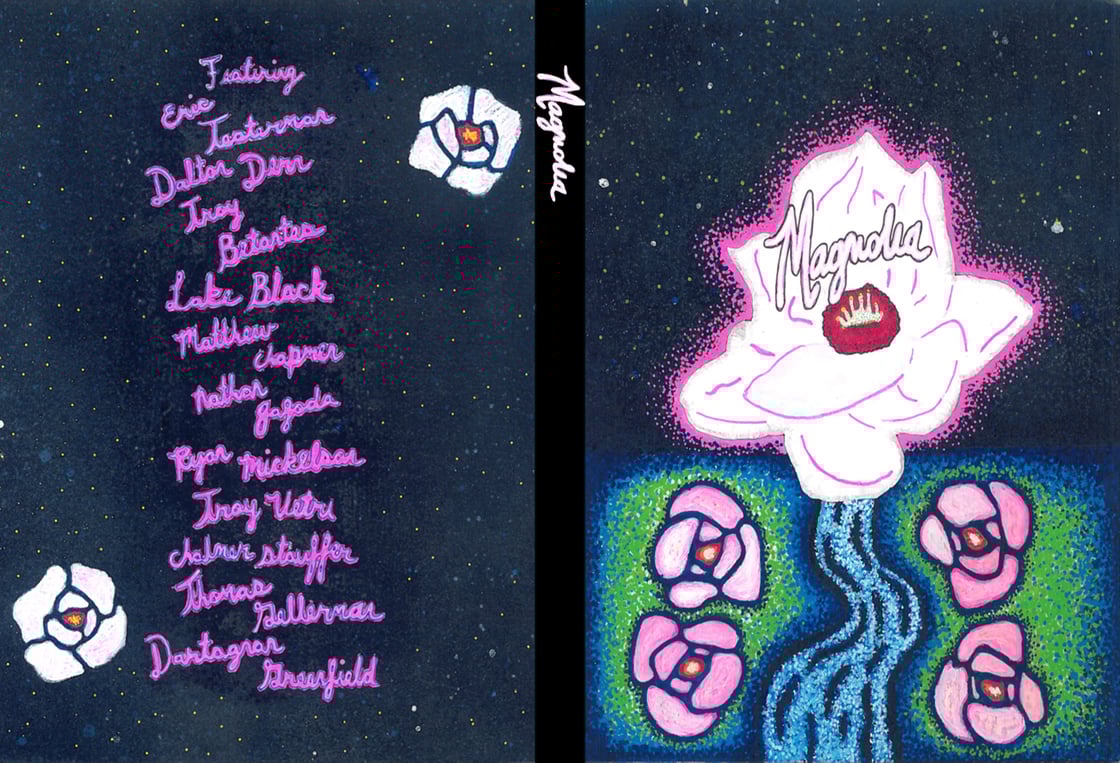 Featuring
Eric
Teeterman
Dalton Dern
Troy
Betantes
Lake Black
Matthew
chapmen
Nathan
gagoda
Ryan Mickelson
Troy Vetri
chalmer stauffer
Thomas
Gellerman
Dartagnan
Greenfield
Magnolia
Magnolia